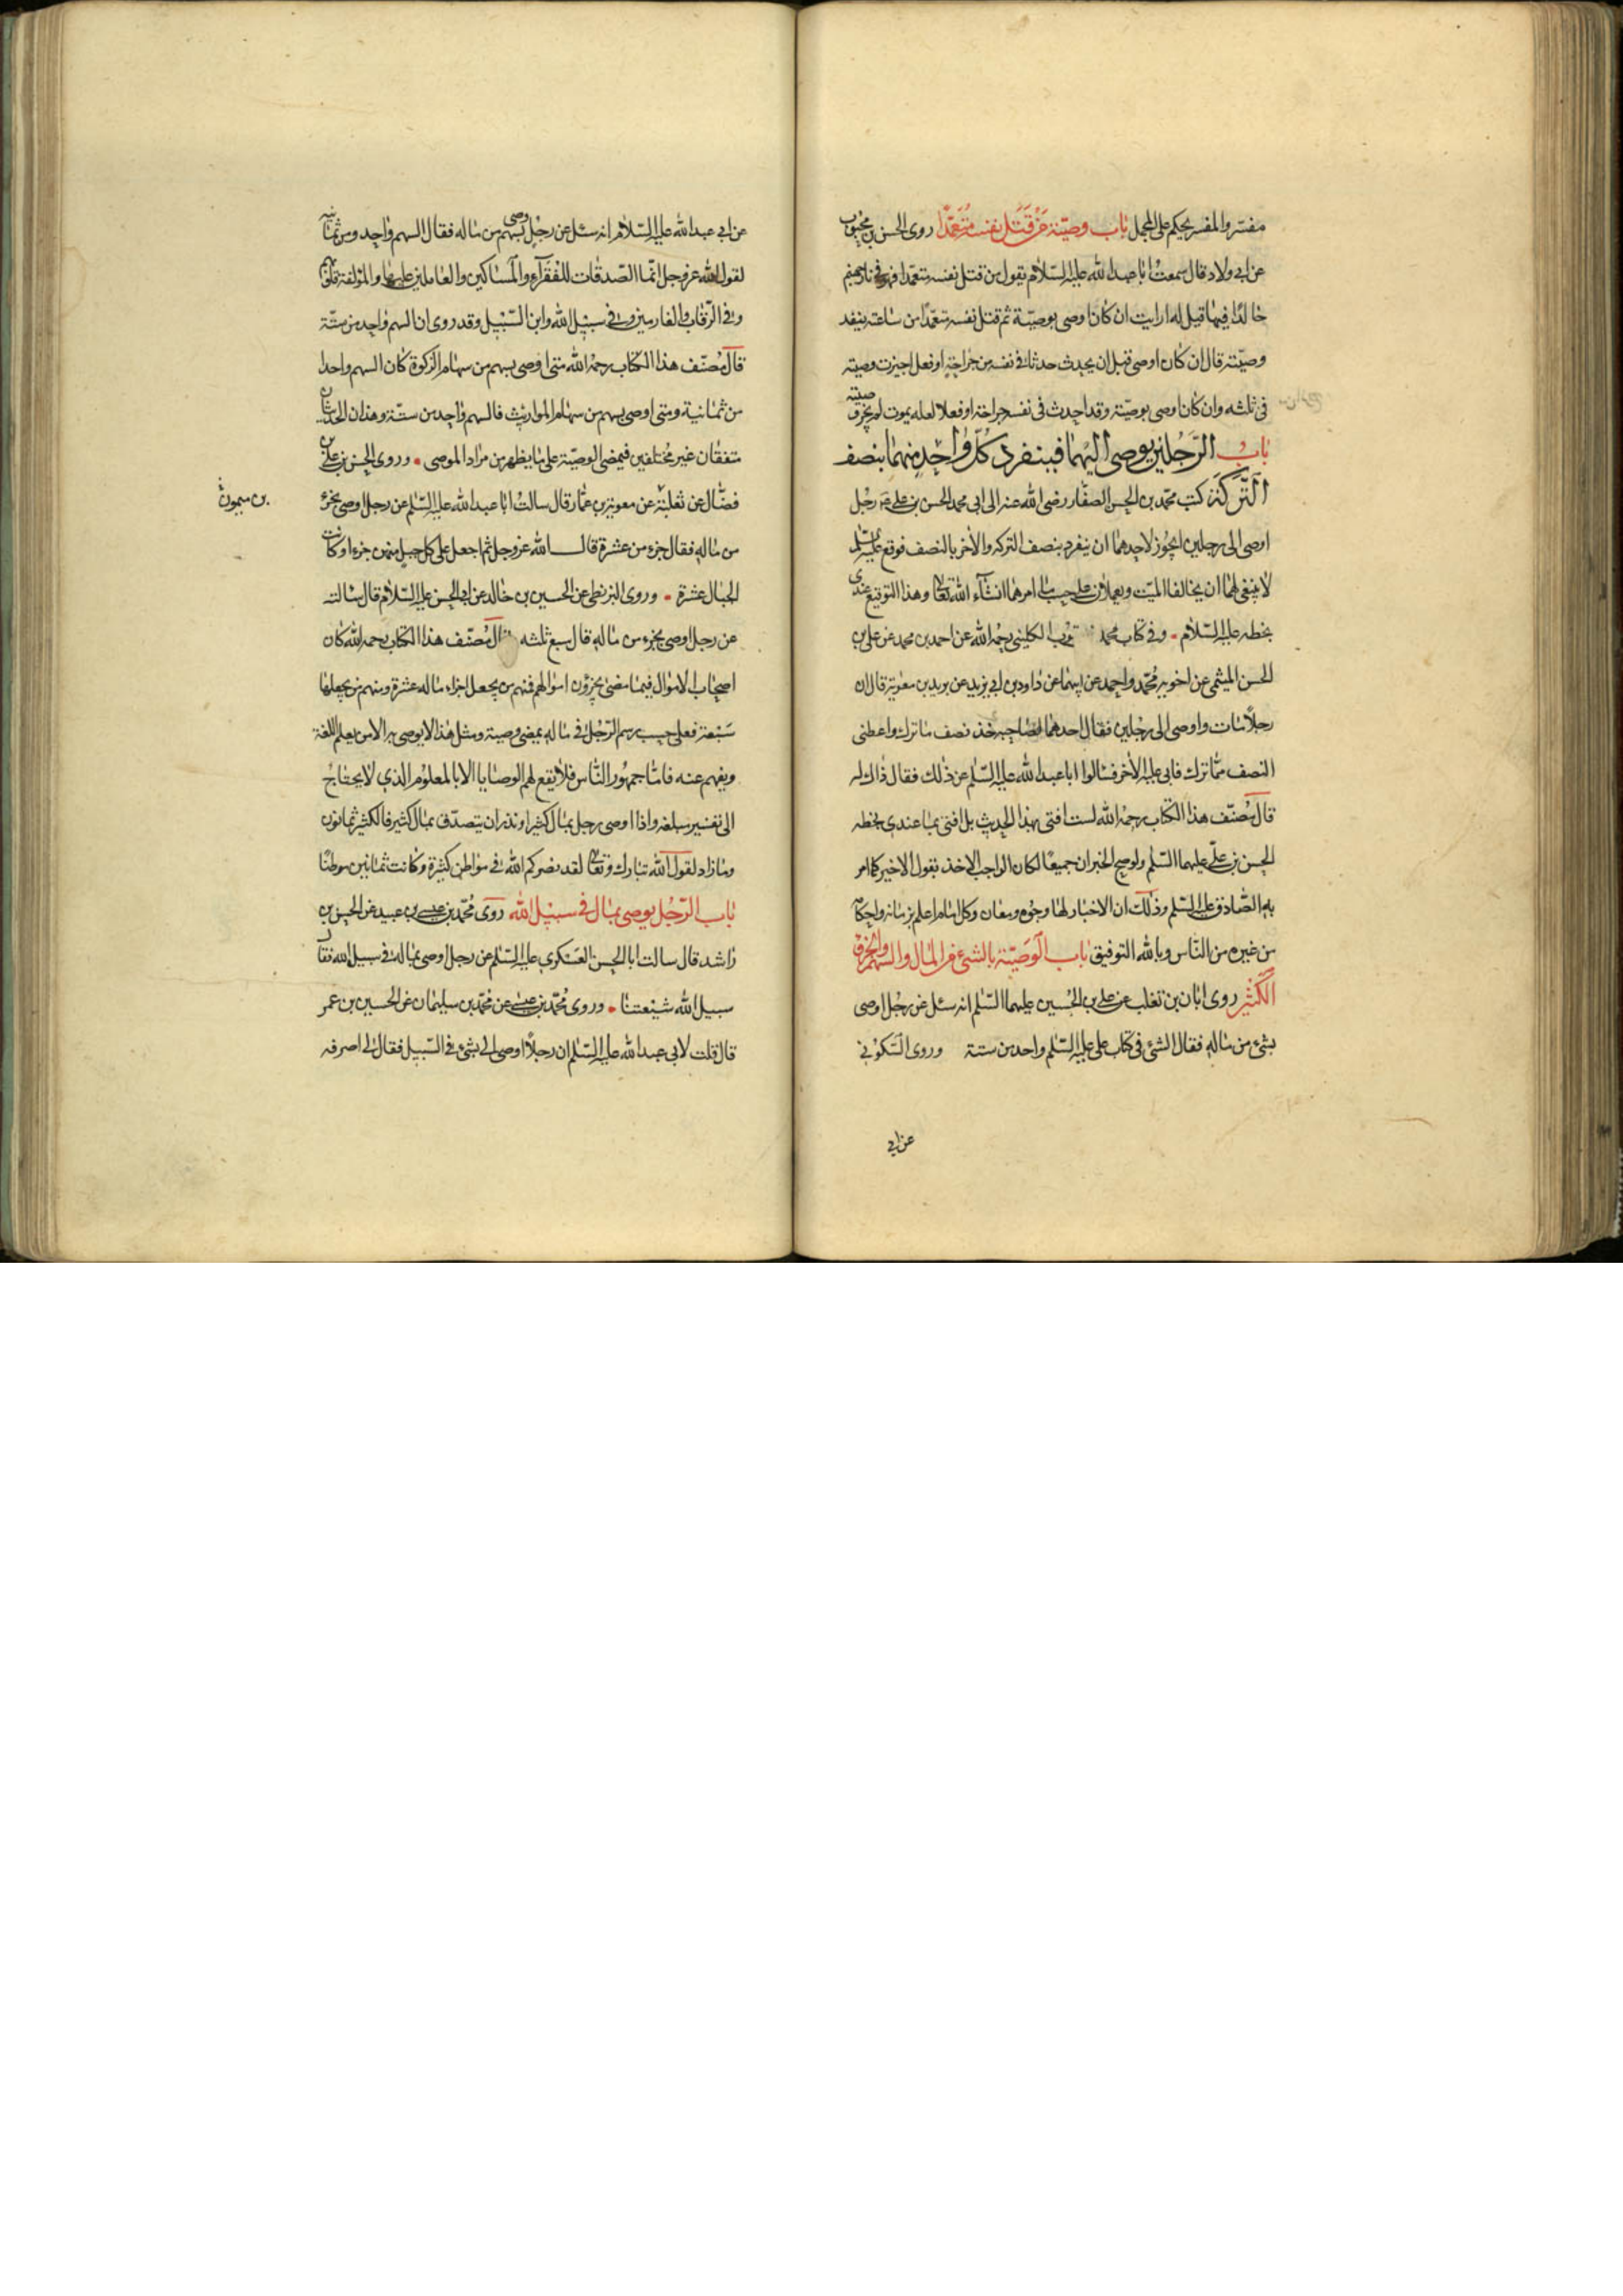 مفسّر والمفسر يحكم على المجمل باب وصيّة مَنْ قَتَلَ نفسه مُتَعَمِّدًا روى الحسن بن محبوب
عن ابي ولاد قال سمعت ابا عبد الله عليه السّلام يقول من قتل نفسه متعمّدا فهو في نار جهنم
خالدًا فيها قيل له ارايت ان كان اوصى بوصيّة ثم قتل نفسه متعمّدًا من ساعته ينفد
وصيّته قال ان كان اوصى قبل ان يحدث حدثا في نفسه من جراحة او فعل اجيزت وصيته
في ثلثه وان كان اوصى بوصيّة وقد احدث في نفسه جراحة او فعلا لعله يموت لم يجز وصيته
بابُ الرَّجُلين يوصى اليهما فينفرد كُلّ واحِدٍ منهما بنصف
التَّركَة كتب محمّد بن الحسن الصفّار رضى الله عنه الى ابي محمد الحسن بن علي ع رجل
اوصى الى رجلين ايجوز لاحدهما ان ينفرد بنصف التركه والاخر بالنصف فوقع عليه السّلم
لا ينبغي لهما ان يخالفا الميّت ويعملان على حسب ما امرهما انشآء الله تعالى وهذا التوقيع عندي
بخطه عليه السّلام • وفي كتاب محمد بن يعقوب الكليني رحمه الله عن احمد بن محمد عن علي بن
الحسن الميثمي عن اخويه محمّد واحمد عن ابيهما عن داود بن ابي يزيد عن بريد بن معوية قال ان
رجلاً مات واوصى الى رجلين فقال احدهما لصاحبه خذ نصف ما ترك واعطنى
النصف ممّا ترك فابى عليه الاخر فسالوا ابا عبد الله عليه السّلم عن ذلك فقال ذاك له
قال مُصَنّف هذا الكتاب رحمه الله لست افتى بهذا الحديث بل افتى بما عندي بخطه
الحسن بن عليّ عليهما السّلم ولو صح الخبران جميعًا لكان الواجب الاخذ بقول الاخير كما امر
به الصّادق عليه السّلم وذلك ان الاخبار لها وجوه ومعان وكل امام اعلم بزمانه واحكامه
من غيره من النّاس وبالله التوفيق باب الوَصيّة بالشئ من المال والسهم والجزء و
الكثير روى ابان بن تغلب عن علي بن الحُسين عليهما السّلم انه سئل عن رجُل اوصى
بشئ من ماله فقال الشئ في كتاب علي عليه السّلم واحد من ستة وروى السّكوني
عن ابي
عن ابي عبد الله عليه السّلام انه سئل عن رجُل وصى بسهم من ماله فقال السهم واحد من ثمانية
لقول الله عز وجل انّما الصّدقات للفُقرآء والمَساكين والعاملين عليها والمؤلفة قلوبهم
وفي الرّقاب والغارمين وفي سبيل الله وابن السّبيل وقد روى ان السهم واحد من ستّة
قال مُصنّف هذا الكتاب رحمه الله متى اوصى بسهم من سهام الزكوة كان السهم واحدا
من ثمانية ومتى اوصى بسهم من سهام المواريث فالسهم واحد من ستّة وهذان الحديثان
متفقان غير مُختلفين فيمضى الوصيّة على ما يظهر من مراد الموصى • وروى الحسن بن علي بن
فضّال عن ثعلبة عن معوية بن عمّار قال سالت ابا عبد الله عليه السّلم عن رجل اوصى بجزء
بن ميمون
من ماله فقال جزء من عشرة قال الله عزوجل ثم اجعل على كل جبل منهن جزءا وكانت
الجبال عشرة • وروى البزنطي عن الحسين بن خالد عن ابي الحسن عليه السّلام قال سالته
عن رجل اوصى بجزء من ماله قال سبع ثلثه قال مُصَنّف هذا الكتاب رحمه الله كان
اصحاب الاموال فيما مضى يجزؤن اموالهم فمنهم من يجعل اجزاء ماله عشرة ومنهم من يجعلها
سَبْعة فعلى حسب رسم الرّجُل في ماله يمضى وصيته ومثل هذا لا يوصى به الا من يعلم اللغة
ويفهم عنه فامّا جمهور النّاس فلا يقع لهم الوصايا الا بالمعلوم الذي لا يحتاج
الى تفسير مبلغه واذا اوصى رجل بمال كثير او نذر ان يتصدّق بمال كثير فالكثير ثمانون
وما زاد لقول الله تبارك وتعالى لقد نصركم الله في مواطن كثيرة وكانت ثمانين موطنًا
باب الرّجُل يوصى بمال في سبيل الله روى مُحمّد بن عيسى بن عبيد عن الحسن بن
راشد قال سالت ابا الحسن العسكري عليه السّلم عن رجل اوصى بماله في سبيل الله فقال
سبيل الله شيعتنا • وروى مُحمّد بن عيسى عن مُحمّد بن سليمان عن الحسين بن عمر
قال قلت لابي عبد الله عليه السّلم ان رجلاً اوصى الي بشئ في السّبيل فقال لي اصرفه